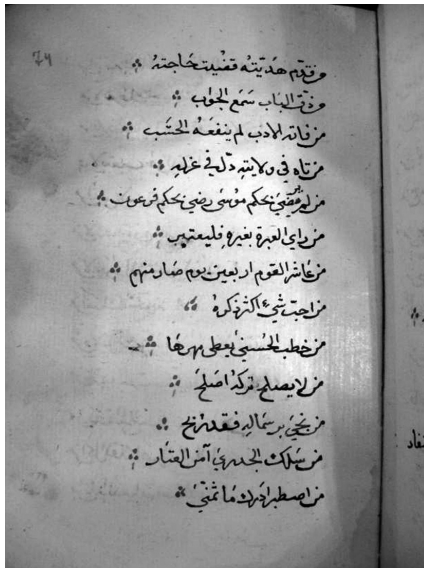 74
من قدم هديته قضيت حاجته
من دق الباب سمع الجواب
من فاته الادب لم ينفعه الحسب
من تاه في ولايته ذل في عزله
من لم يرضى بحكم موسى رضي بحكم فرعون
من راي العبرة بغيره فليعتبر
من عاشر القوم اربعين يوم صار منهم
من احب شيء اكثر ذكره
من خطب الحسنى يعطى مهرها
من لا يصلح تركه اصلح
من نجي براسماله فقد ربح
من سلك الجدد امن العثار
من اصطبر ادرك ما تمنى